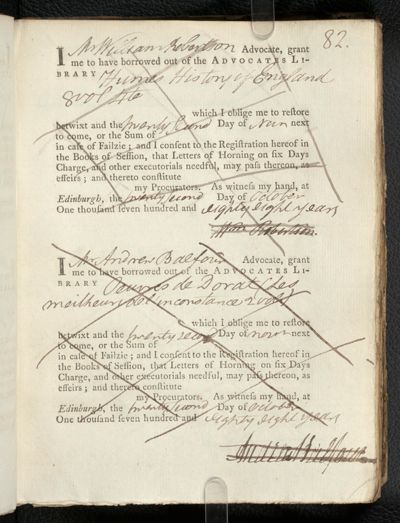 82.
I Mr William Robertson Advocate, grant
me to have borrowed out of the ADVOCATES LI-
BRARY Humes History of England
8 vol 4to
which I oblige me to restore
betwixt and the twenty second Day of Novr next
to come, or the Sum of
in case of Failzie; and I consent to the Registration hereof in
the Books of Session, that Letters of Horning on six Days
Charge, and other executorials needful, may pass thereon, as
effeirs; and thereto constitute
my Procurators. As witness my hand, at
Edinburgh, the twenty second Day of October
One thousand seven hundred and eighty eight years
Will Robertson.
I Mr Andrew Balfour Advocate, grant
me to have borrowed out of the ADVOCATES LI-
BRARY Oeuvres de Dorat (Les
inconstance 2 vols)
which I oblige me to restore
betwixt and the twenty secd Day of Novr next
to come, or the Sum of
in case of Failzie; and I consent to the Registration hereof in
the Books of Session, that Letters of Horning on six Days
Charge, and other executorials needful, may pass thereon, as
effeirs; and thereto constitute
my Procurators. As witness my hand, at
Edinburgh, the twenty second Day of October
One thousand seven hundred and eighty eight years
Andrew Balfour